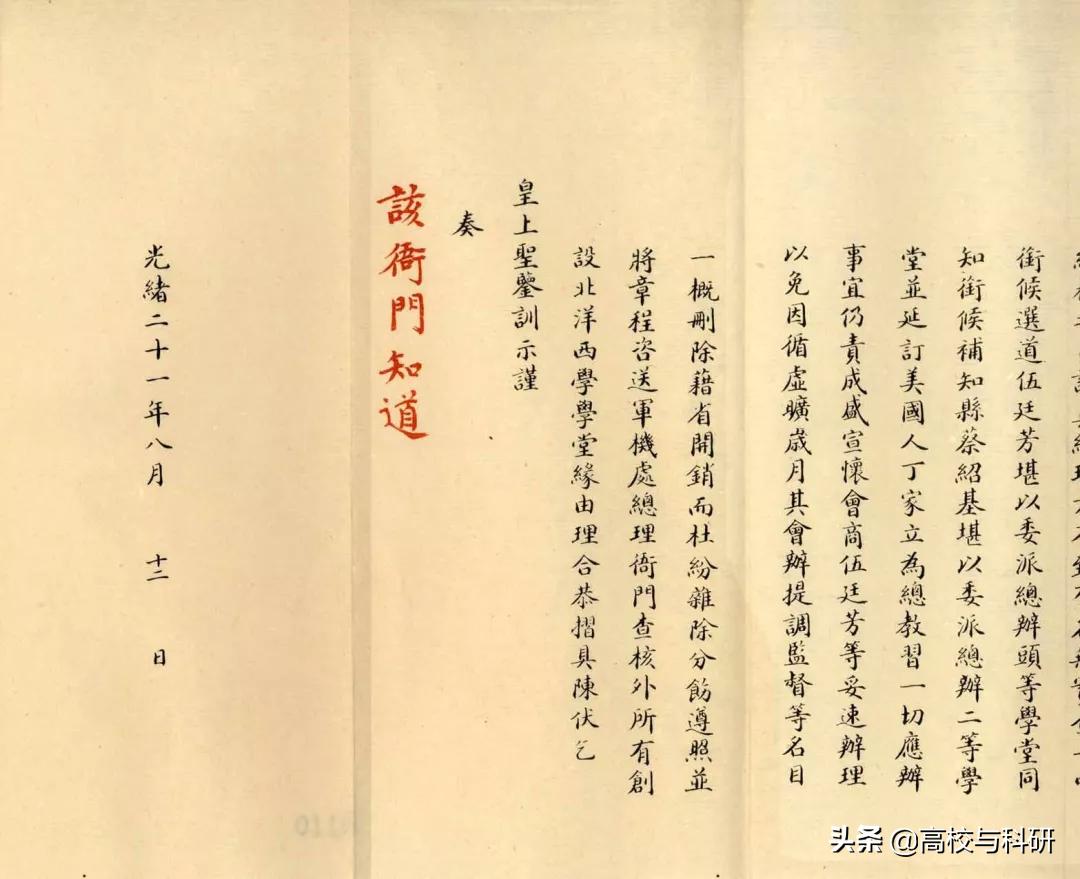 銜候選道伍廷芳堪以委派總辦頭等學堂同
知銜候補知縣蔡紹基堪以委派總辦二等學
堂並延訂美國人丁家立為總教習一切應辦
事宜仍責成盛宣懷會商伍廷芳等妥速辦理
以免因循虛曠歲月其會辦提調監督等名目
一概刪除藉省開銷而杜紛雜除分飭遵照並
將章程咨送軍機處總理衙門查核外所有創
設北洋西學學堂緣由理合恭摺具陳伏乞
皇上聖鑒訓示謹
奏
該衙門知道
光緒二十一年八月 十二 日
头条 @高校与科研